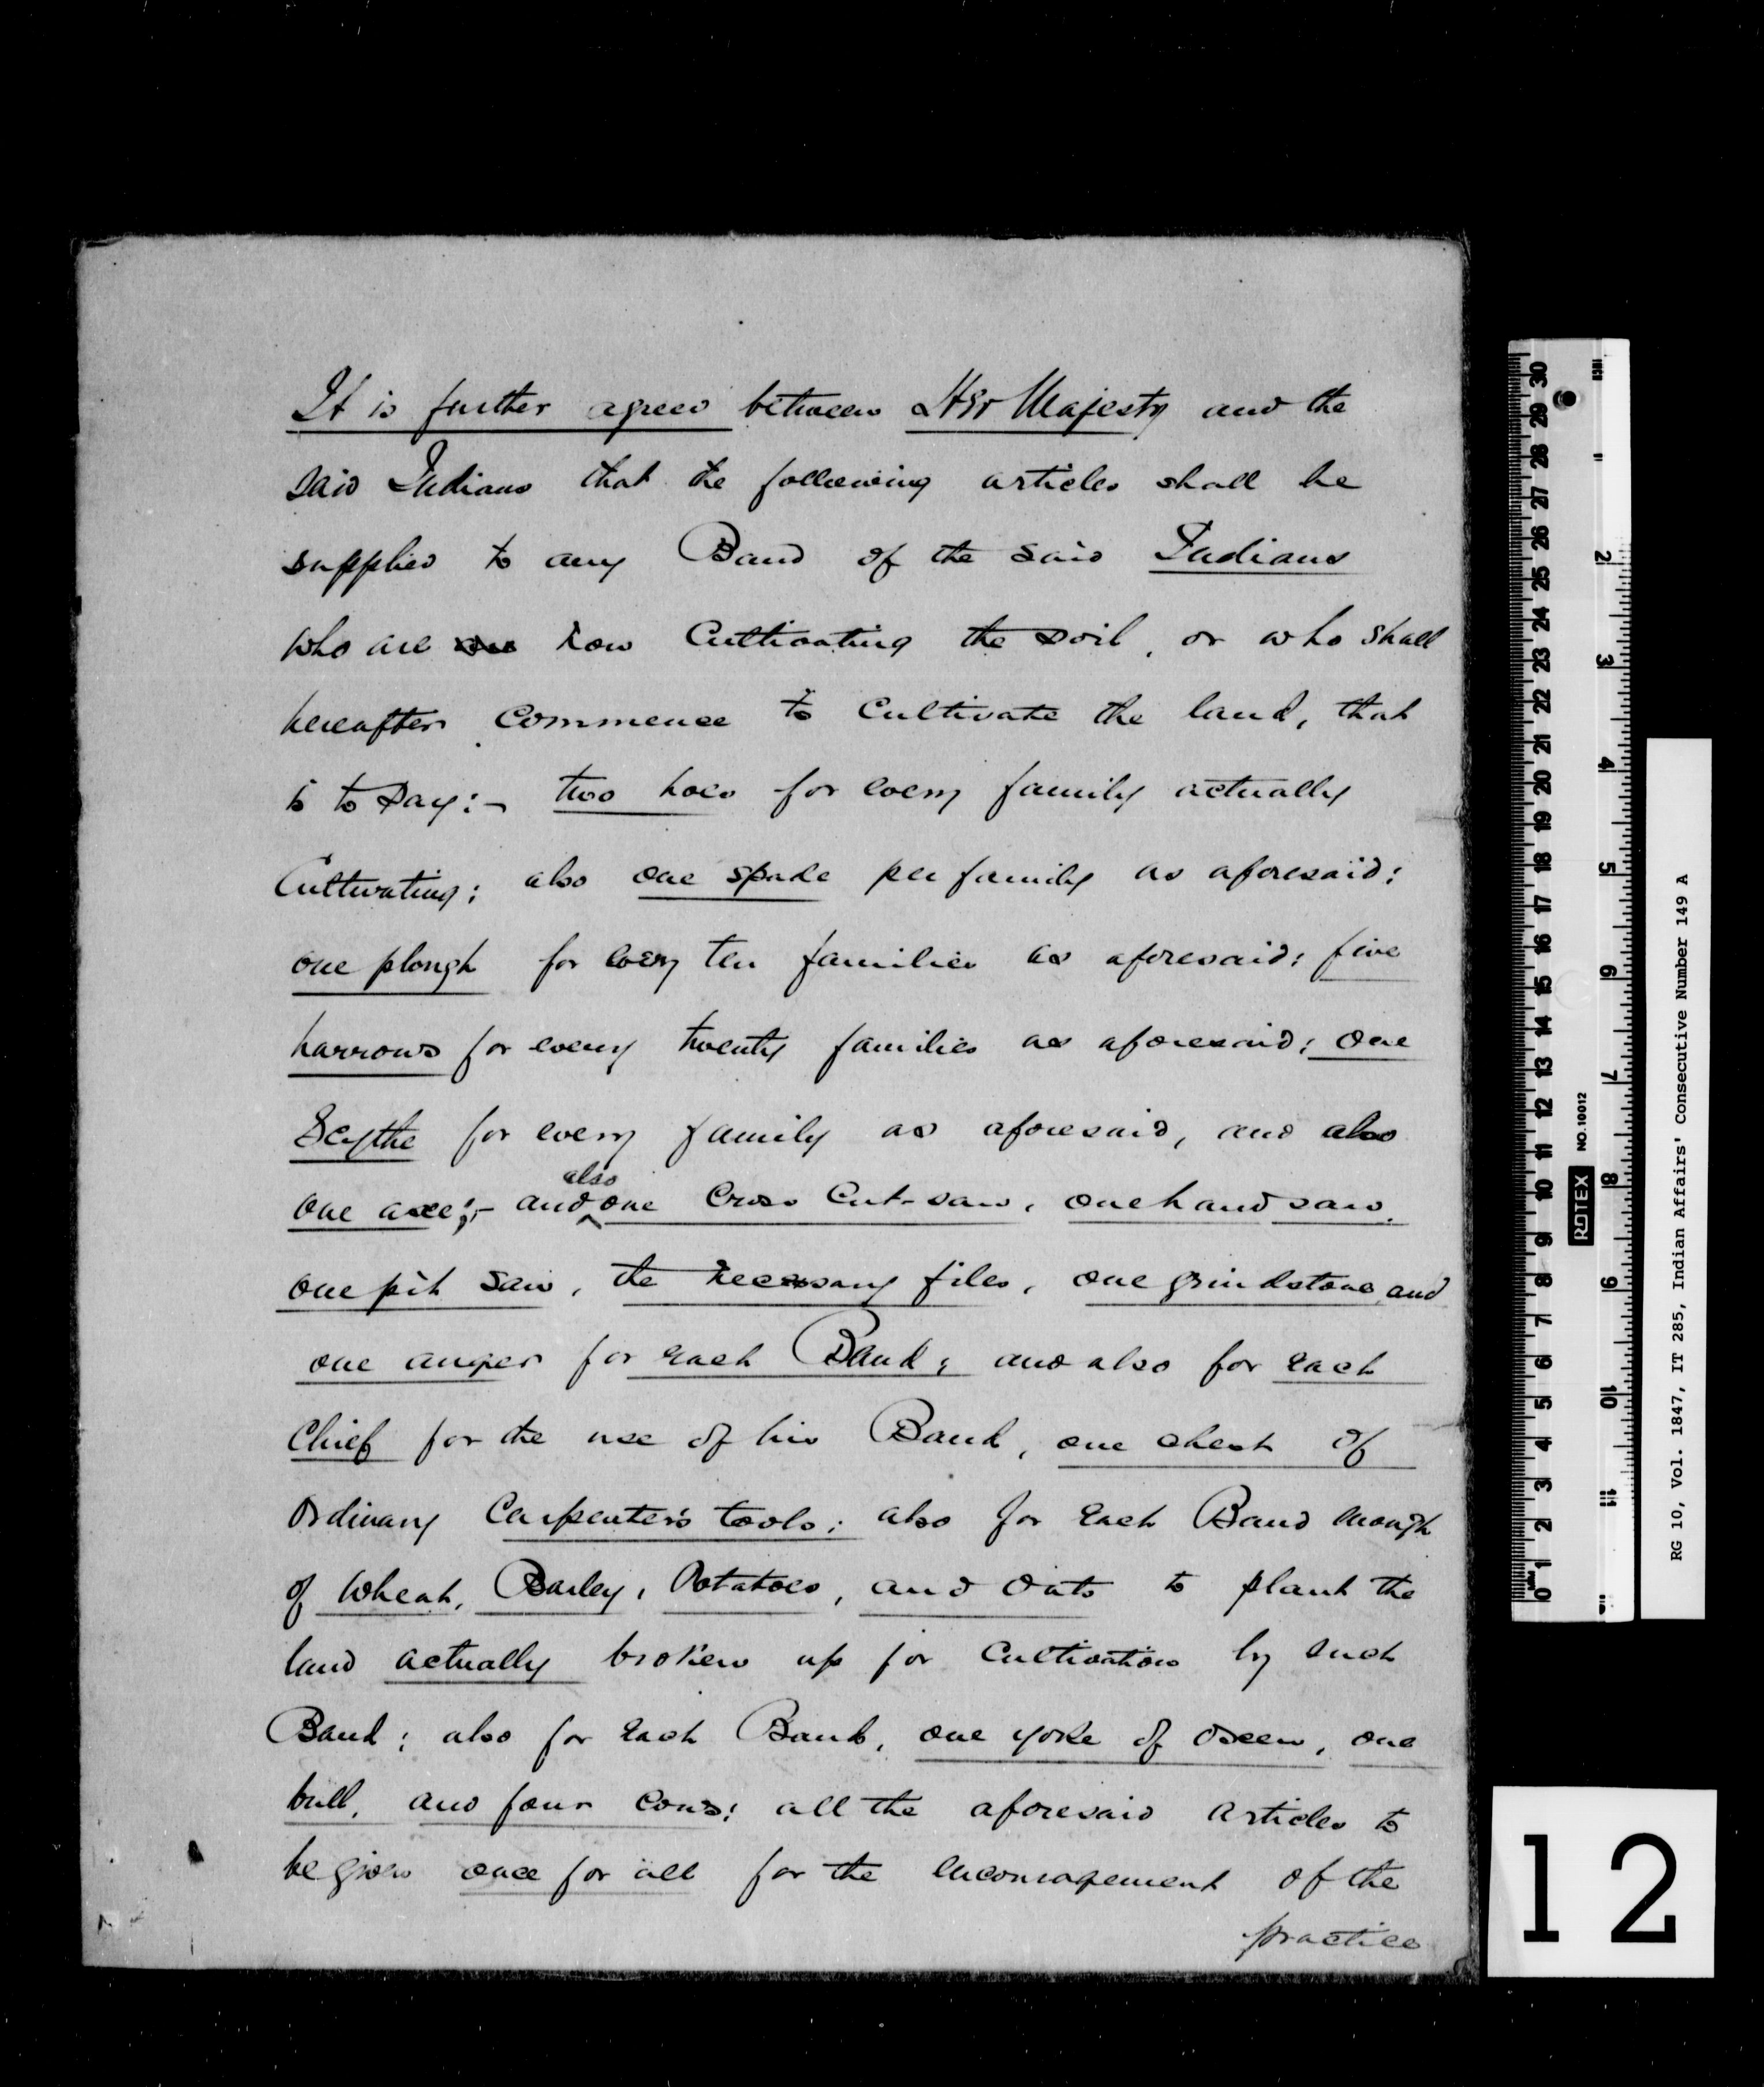 It is further agreed between Her Majesty and the
said Indians that the following articles shall be
supplied to any Band of the said Indians
who are now Cultivating the soil, or who shall
hereafter commence to Cultivate the land, that
is to say:- two hoes for every family actually
Cultivating; also one spade per family as aforesaid;
one plough for every ten families as aforesaid; five
harrows for every twenty families as aforesaid; one
Scythe for every family as aforesaid, and also
one axe;- and also one Cross Cut-saw, one hand saw,
one pit saw, the necessary files, one grindstone, and
one auger for each Band; and also for each
Chief for the use of his Band, one chest of
Ordinary Carpenter's tools; also for each Band enough
of Wheat, Barley, Potatoes, and Oats to plant the
land actually broken up for Cultivation by such
Band; also for each Band, one yoke of Oxen, one
bull, and four cows; all the aforesaid articles to
be given once for all for the encouragement of the
practice
RG 10, Vol. 1847, IT 285, Indian Affairs' Consecutive Number 149 A
ROTEX NO.10012
INCH 1 2 3 4 5 6 7 8 9 10 11 12
30 29 28 27 26 25 24 23 22 21 20 19 18 17 16 15 14 13 12 11 10 9 8 7 6 5 4 3 2 1 0
12